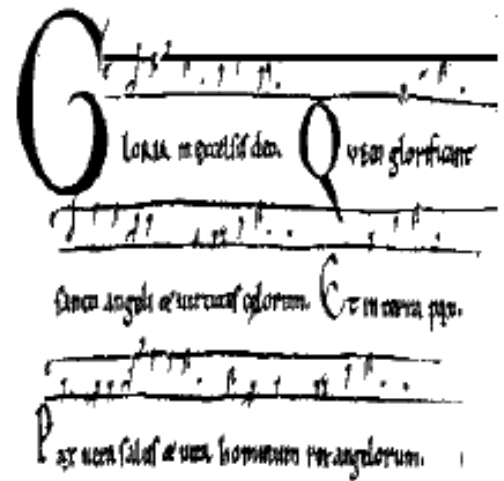 Gloria in excelsis deo. Quem glorificant
sancti angeli & uirtutes cęlorum. Et in terra pax.
Pax uera salus & uita hominum rex angelorum.